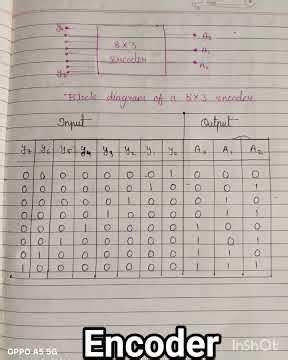 y₀ A₂
8×3 A₁
encoder
y₇ A₀
Block diagram of a 8×3 encoder
Input Output
y₇ y₆ y₅ y₄ y₃ y₂ y₁ y₀ A₀ A₁ A₂
0 0 0 0 0 0 0 1 0 0 0
0 0 0 0 0 0 1 0 0 0 1
0 0 0 0 0 1 0 0 0 1 0
0 0 0 0 1 0 0 0 0 1 1
0 0 0 1 0 0 0 0 1 0 0
0 0 1 0 0 0 0 0 1 0 1
0 1 0 0 0 0 0 0 1 1 0
1 0 0 0 0 0 0 0 1 1 1
Encoder
OPPO A5 5G InShOt